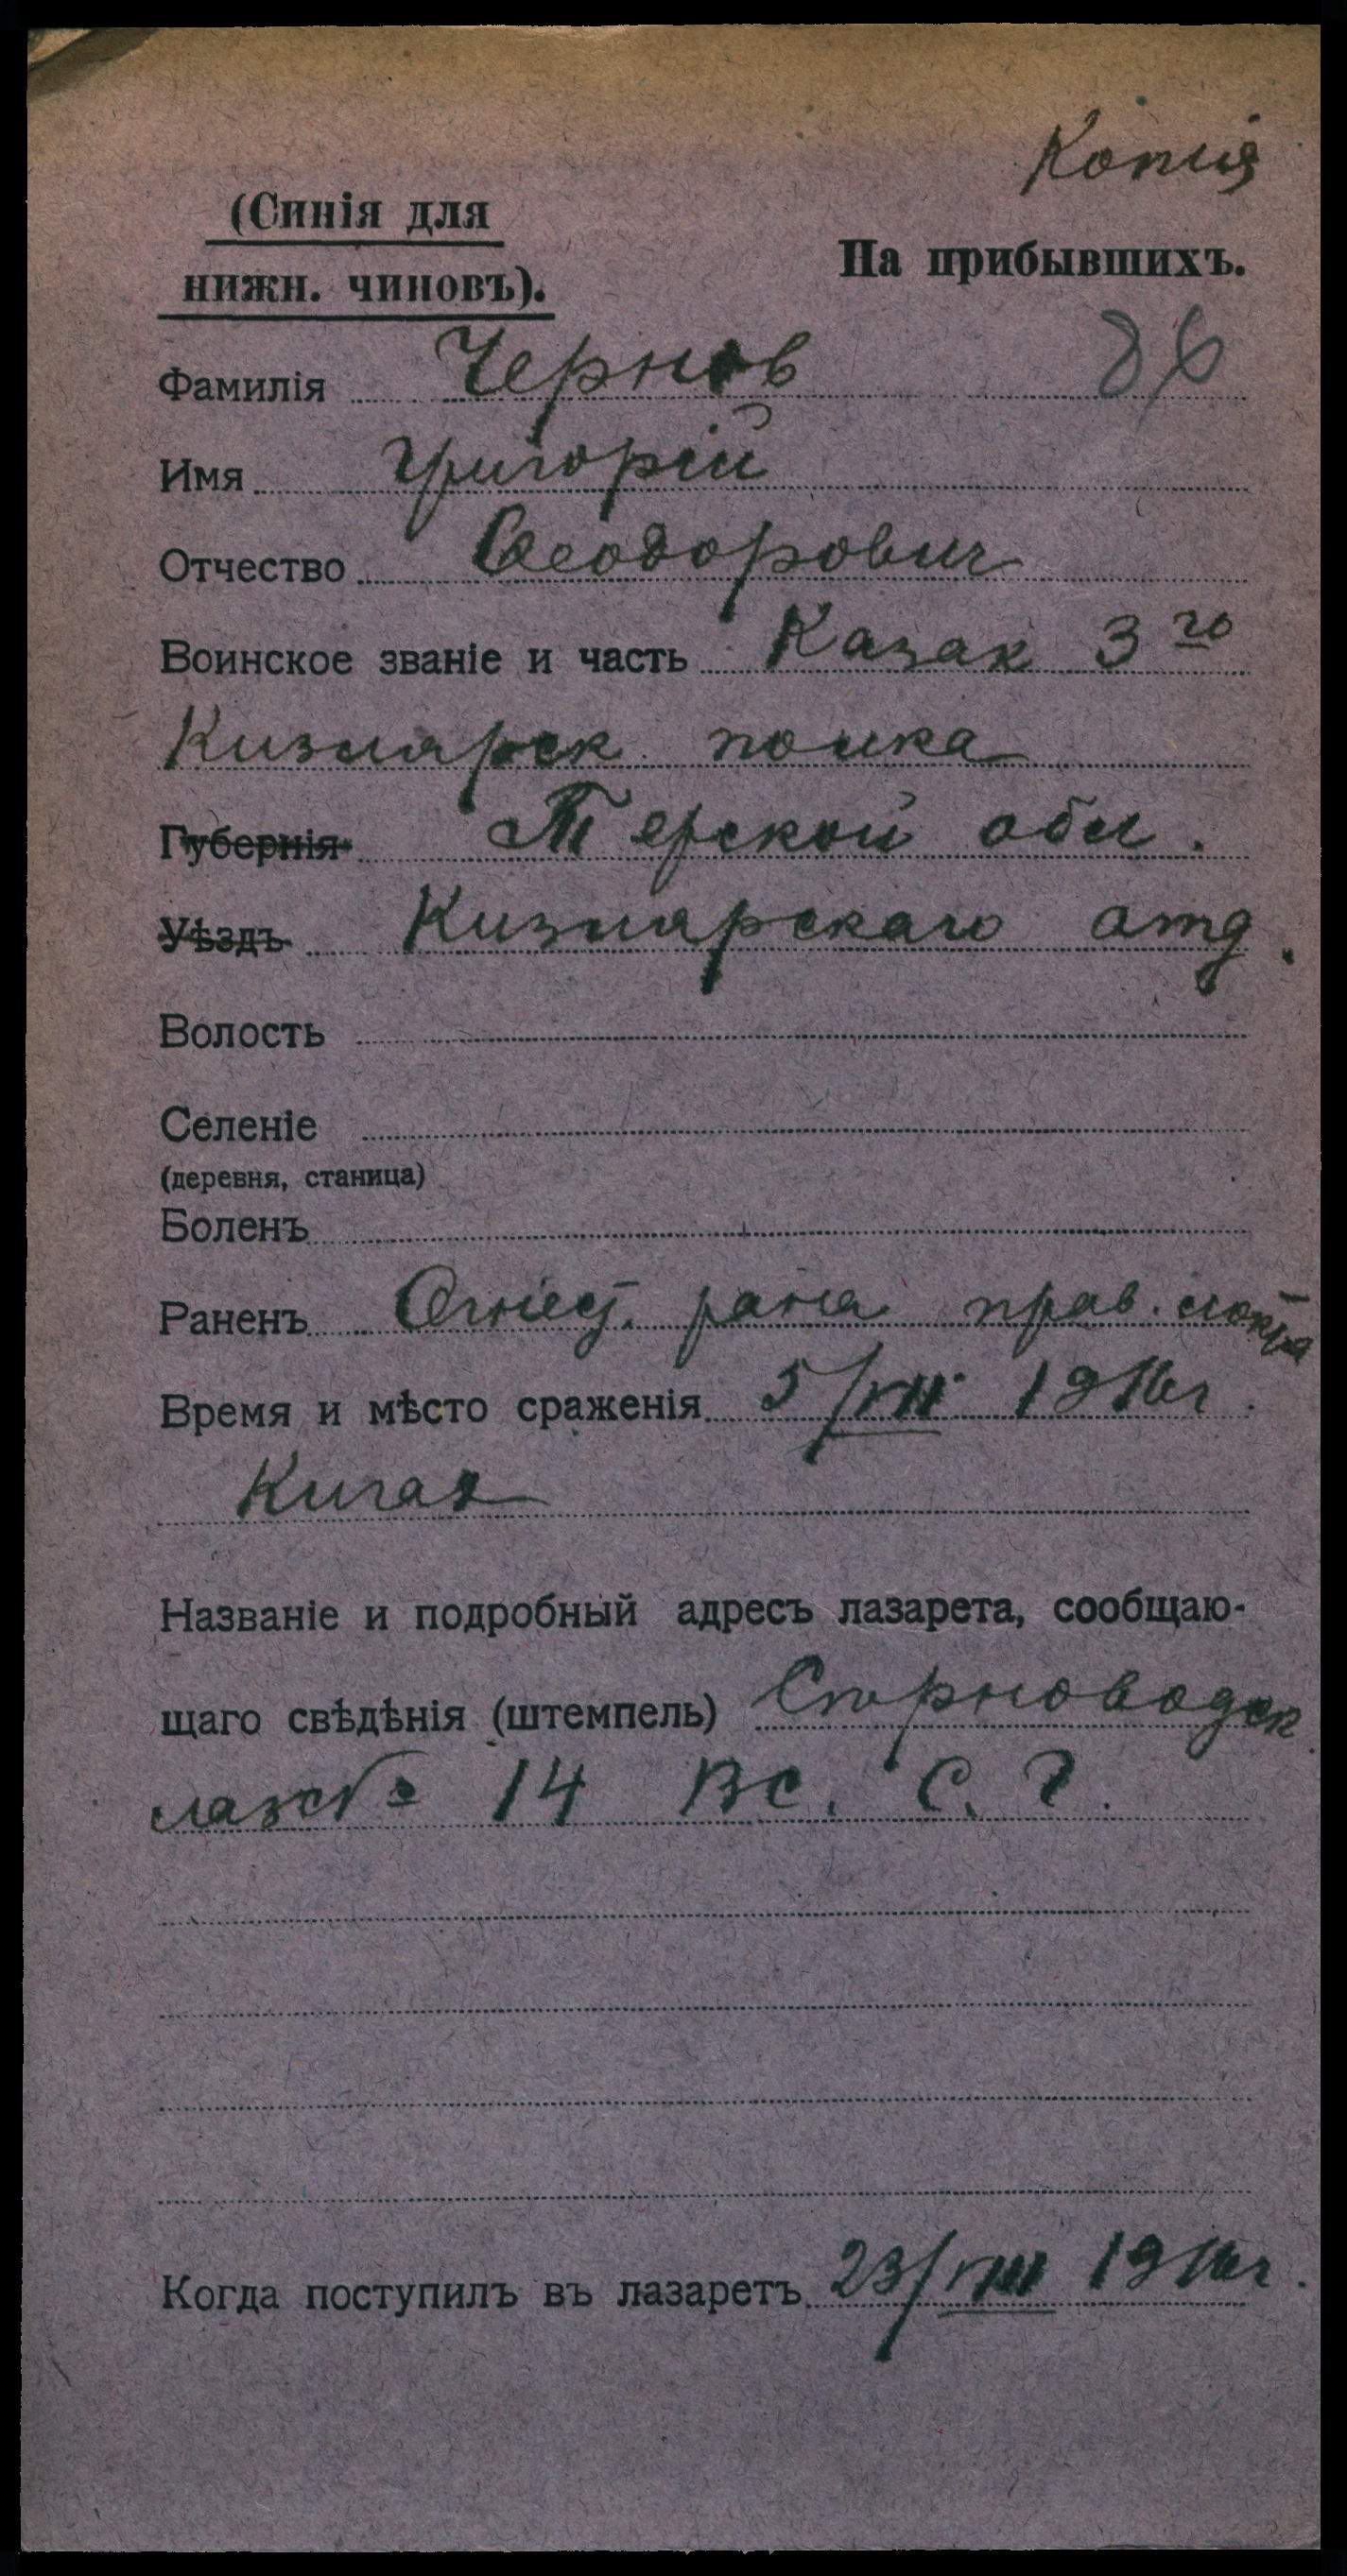 Копия
(Синія для
нижн. чиновъ).
На прибывшихъ.
Фамилія Чернов
86
Имя Григорій
Отчество Ѳеодорович
Воинское званіе и часть Казак 3го
Кизлярск полка
Губернія Терской обл.
Уѣздъ Кизлярскаго отд.
Волость
Селеніе
(деревня, станица)
Боленъ
Раненъ Огнест. рана прав. локтя
Время и мѣсто сраженія 5/VIII 1916 г.
Кигах
Названіе и подробный адресъ лазарета, сообщаю-
щаго свѣдѣнія (штемпель) Серноводск
лаз № 14 Вс. С. Г.
Когда поступилъ въ лазаретъ 23/VIII 1916 г.